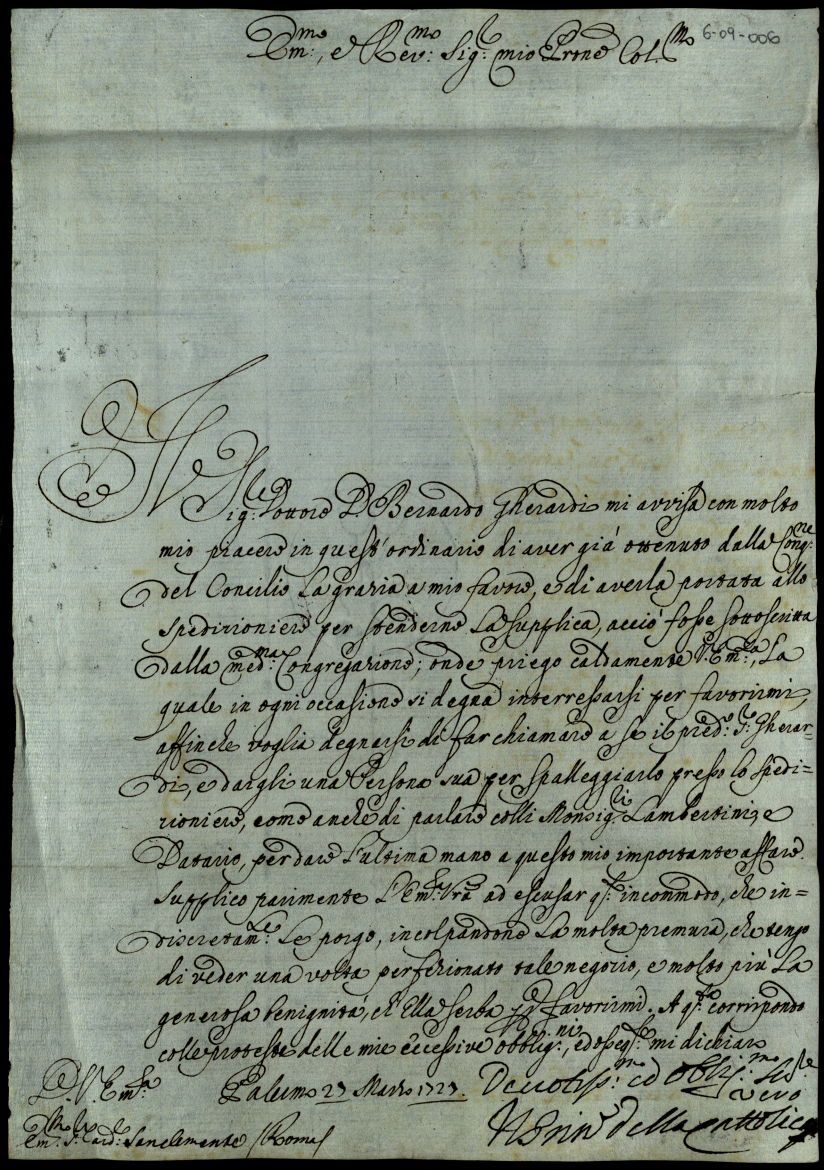 Em:mo, e Rev:mo Sig:r mio Prone Col:mo
6-09-006
Il Sig:le Dottore D. Bernardo Gherardi mi avvisa con molto
mio piacere in quest'ordinario di aver già ottenuto dalla Cong:ne
del Concilio la grazia a mio favore, e di averla portata allo
spedizioniere per stenderne la supplica, acciò fosse sottoscritta
dalla med:ma Congregazione; onde priego caldamente V. Em:za, la
quale in ogni occasione si degna interressarsi per favorirmi,
affinche voglia degnarsi di far chiamare a se il pred:o S:r Gherar-
di, e dargli una Persona sua per spalleggiarlo presso lo spedi=
zioniere, come anche di parlare colli Monsig:ri Lambertini, e
Datario, per dare l'ultima mano a questo mio importante affare.
Supplico parimente l'Em:za Vra ad escusar q:to incommodo, che in=
discretam:te le porgo, incolpandone la molta premura, che tengo
di veder una volta perfezionato tale negozio, e molto più la
generosa benignità, ch'Ella serba per favorirmi. A q:to corrispondo
colle proteste delle mie eccessive obblig:ni, ed osseq:se mi dichiaro
D. V. Em:za Palermo 27 Marzo 1727. Devotiss:mo ed Obblig:mo Ser:re
vero
Em:mo S:r Card:le Sanclemente (Roma)
Il Prin:e della Cattolica